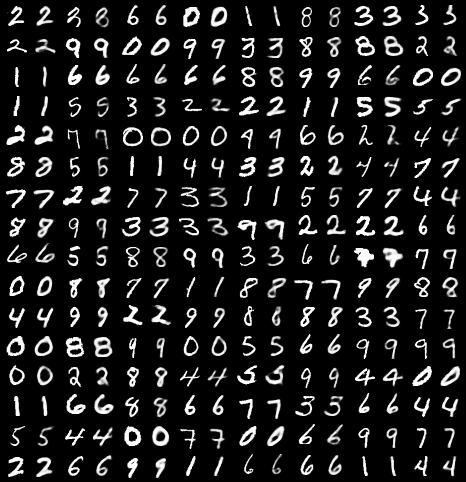 2 2 8 8 6 6 0 0 1 1 8 8 3 3 3 3
2 2 9 9 0 0 9 9 3 3 8 8 8 8 2 2
1 1 6 6 6 6 6 6 8 8 9 9 6 6 0 0
1 1 5 5 3 3 2 2 2 2 1 1 5 5 5 5
2 2 7 7 0 0 0 0 9 9 6 6 2 2 4 4
8 8 5 5 1 1 4 4 3 3 2 2 4 4 7 7
7 7 2 2 7 7 3 3 1 1 5 5 7 7 4 4
8 8 9 9 3 3 3 3 9 9 2 2 2 2 6 6
6 6 5 5 8 8 9 9 3 3 6 6 7 7 7 9
0 0 8 8 7 7 1 1 8 8 7 7 9 9 8 8
4 4 9 9 2 2 9 9 8 8 8 8 3 3 7 7
0 0 8 8 9 9 0 0 5 5 6 6 9 9 9 9
0 0 2 2 8 8 4 4 5 5 9 9 4 4 0 0
1 1 6 6 8 8 6 6 7 7 3 3 6 6 4 4
5 5 4 4 0 0 7 7 0 0 6 6 9 9 7 7
2 2 6 6 9 9 1 1 6 6 6 6 1 1 4 4